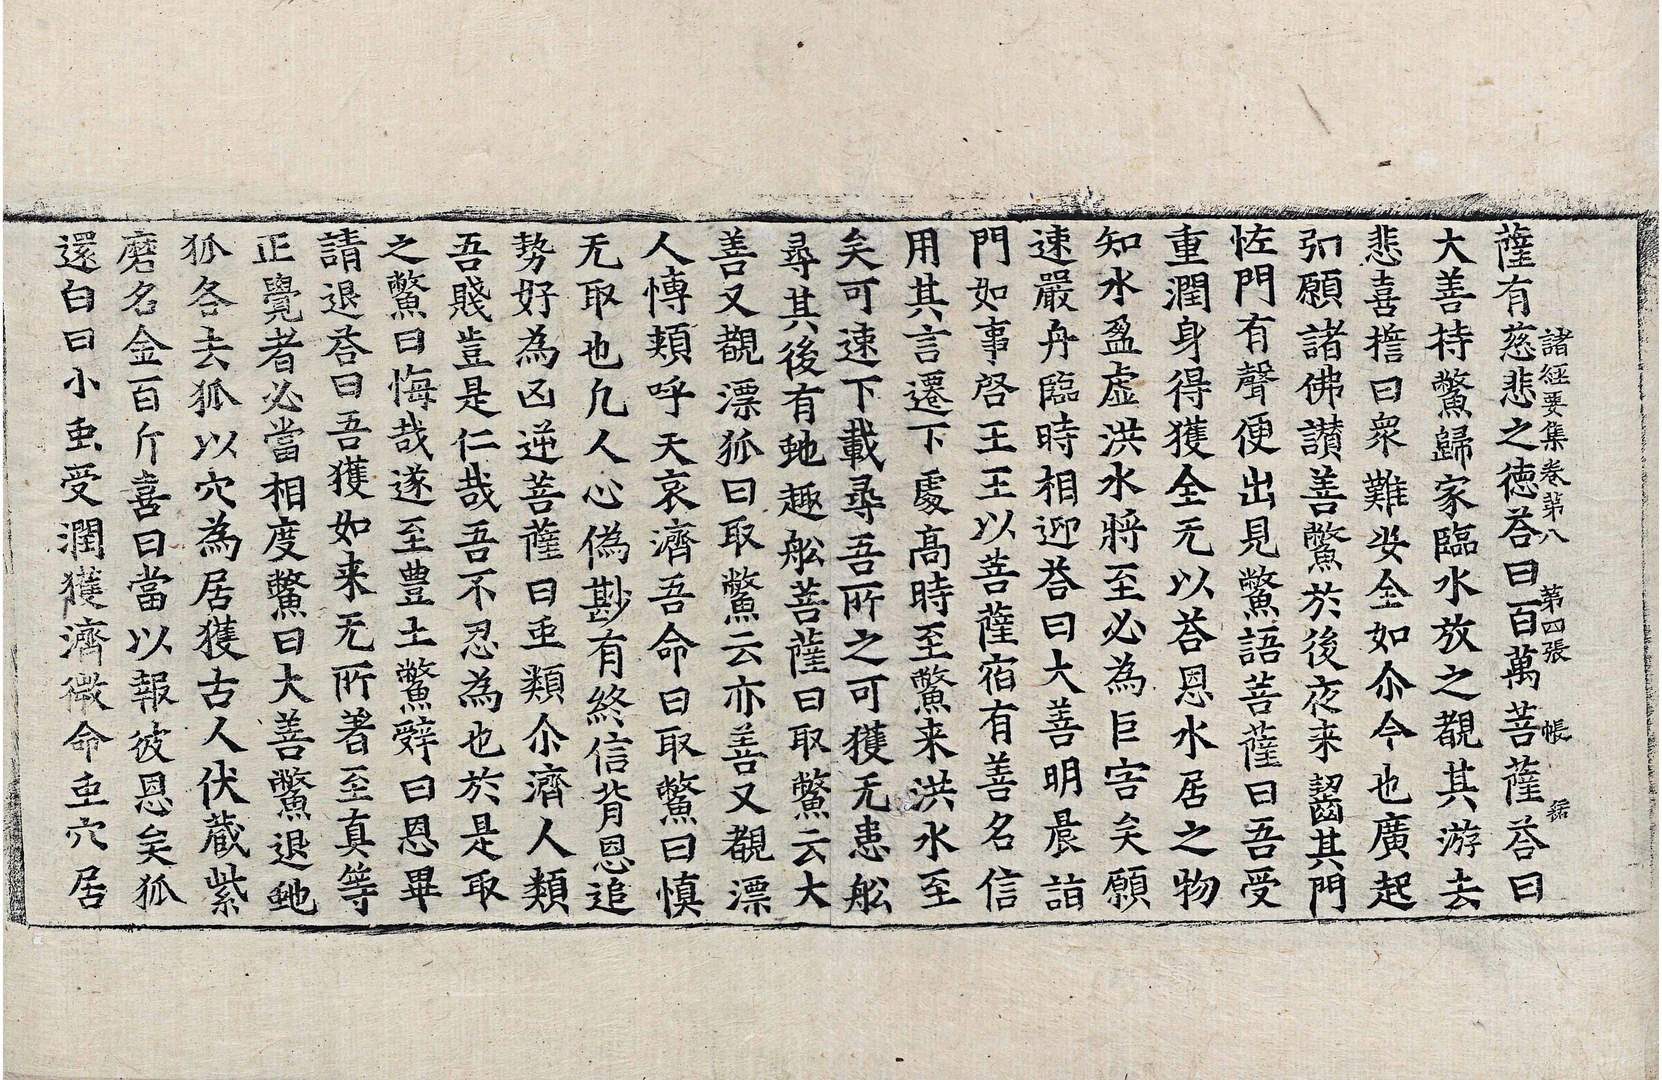 諸經要集卷苐八　第四張　帳
薩有慈悲之徳荅曰百萬菩薩荅曰
大善持鱉歸家臨水放之覩其游去
悲喜擔曰衆難㝵全如尒今也廣起
弘願諸佛讃善鱉於後夜来齧其門
恠門有聲便出見鱉語菩薩曰吾受
重潤身得獲全无以荅恩水居之物
知水盈虚洪水將至必為巨害矣願
速嚴舟臨時相迎荅曰大善明晨詣
門如事啓王王以菩薩宿有善名信
用其言遷下處髙時至鱉来洪水至
矣可速下載尋吾所之可獲无患舩
尋其後有虵趣舩菩薩曰取鱉云大
善又覩漂狐曰取鱉云亦善又覩漂
人慱頬呼天哀濟吾命曰取鱉曰慎
无取也凢人心偽尠有終信背恩追
勢好為凶逆菩薩曰䖝類尒濟人類
吾賤豈是仁哉吾不忍為也於是取
之鱉曰悔哉遂至豊土鱉辤曰恩畢
請退荅曰吾獲如来无所著至真等
正覺者必當相度鱉曰大善鱉退虵
狐各去狐以穴為居獲古人伏蔵紫
磨名金百斤喜曰當以報彼恩矣狐
還白曰小䖝受潤獲濟微命䖝穴居